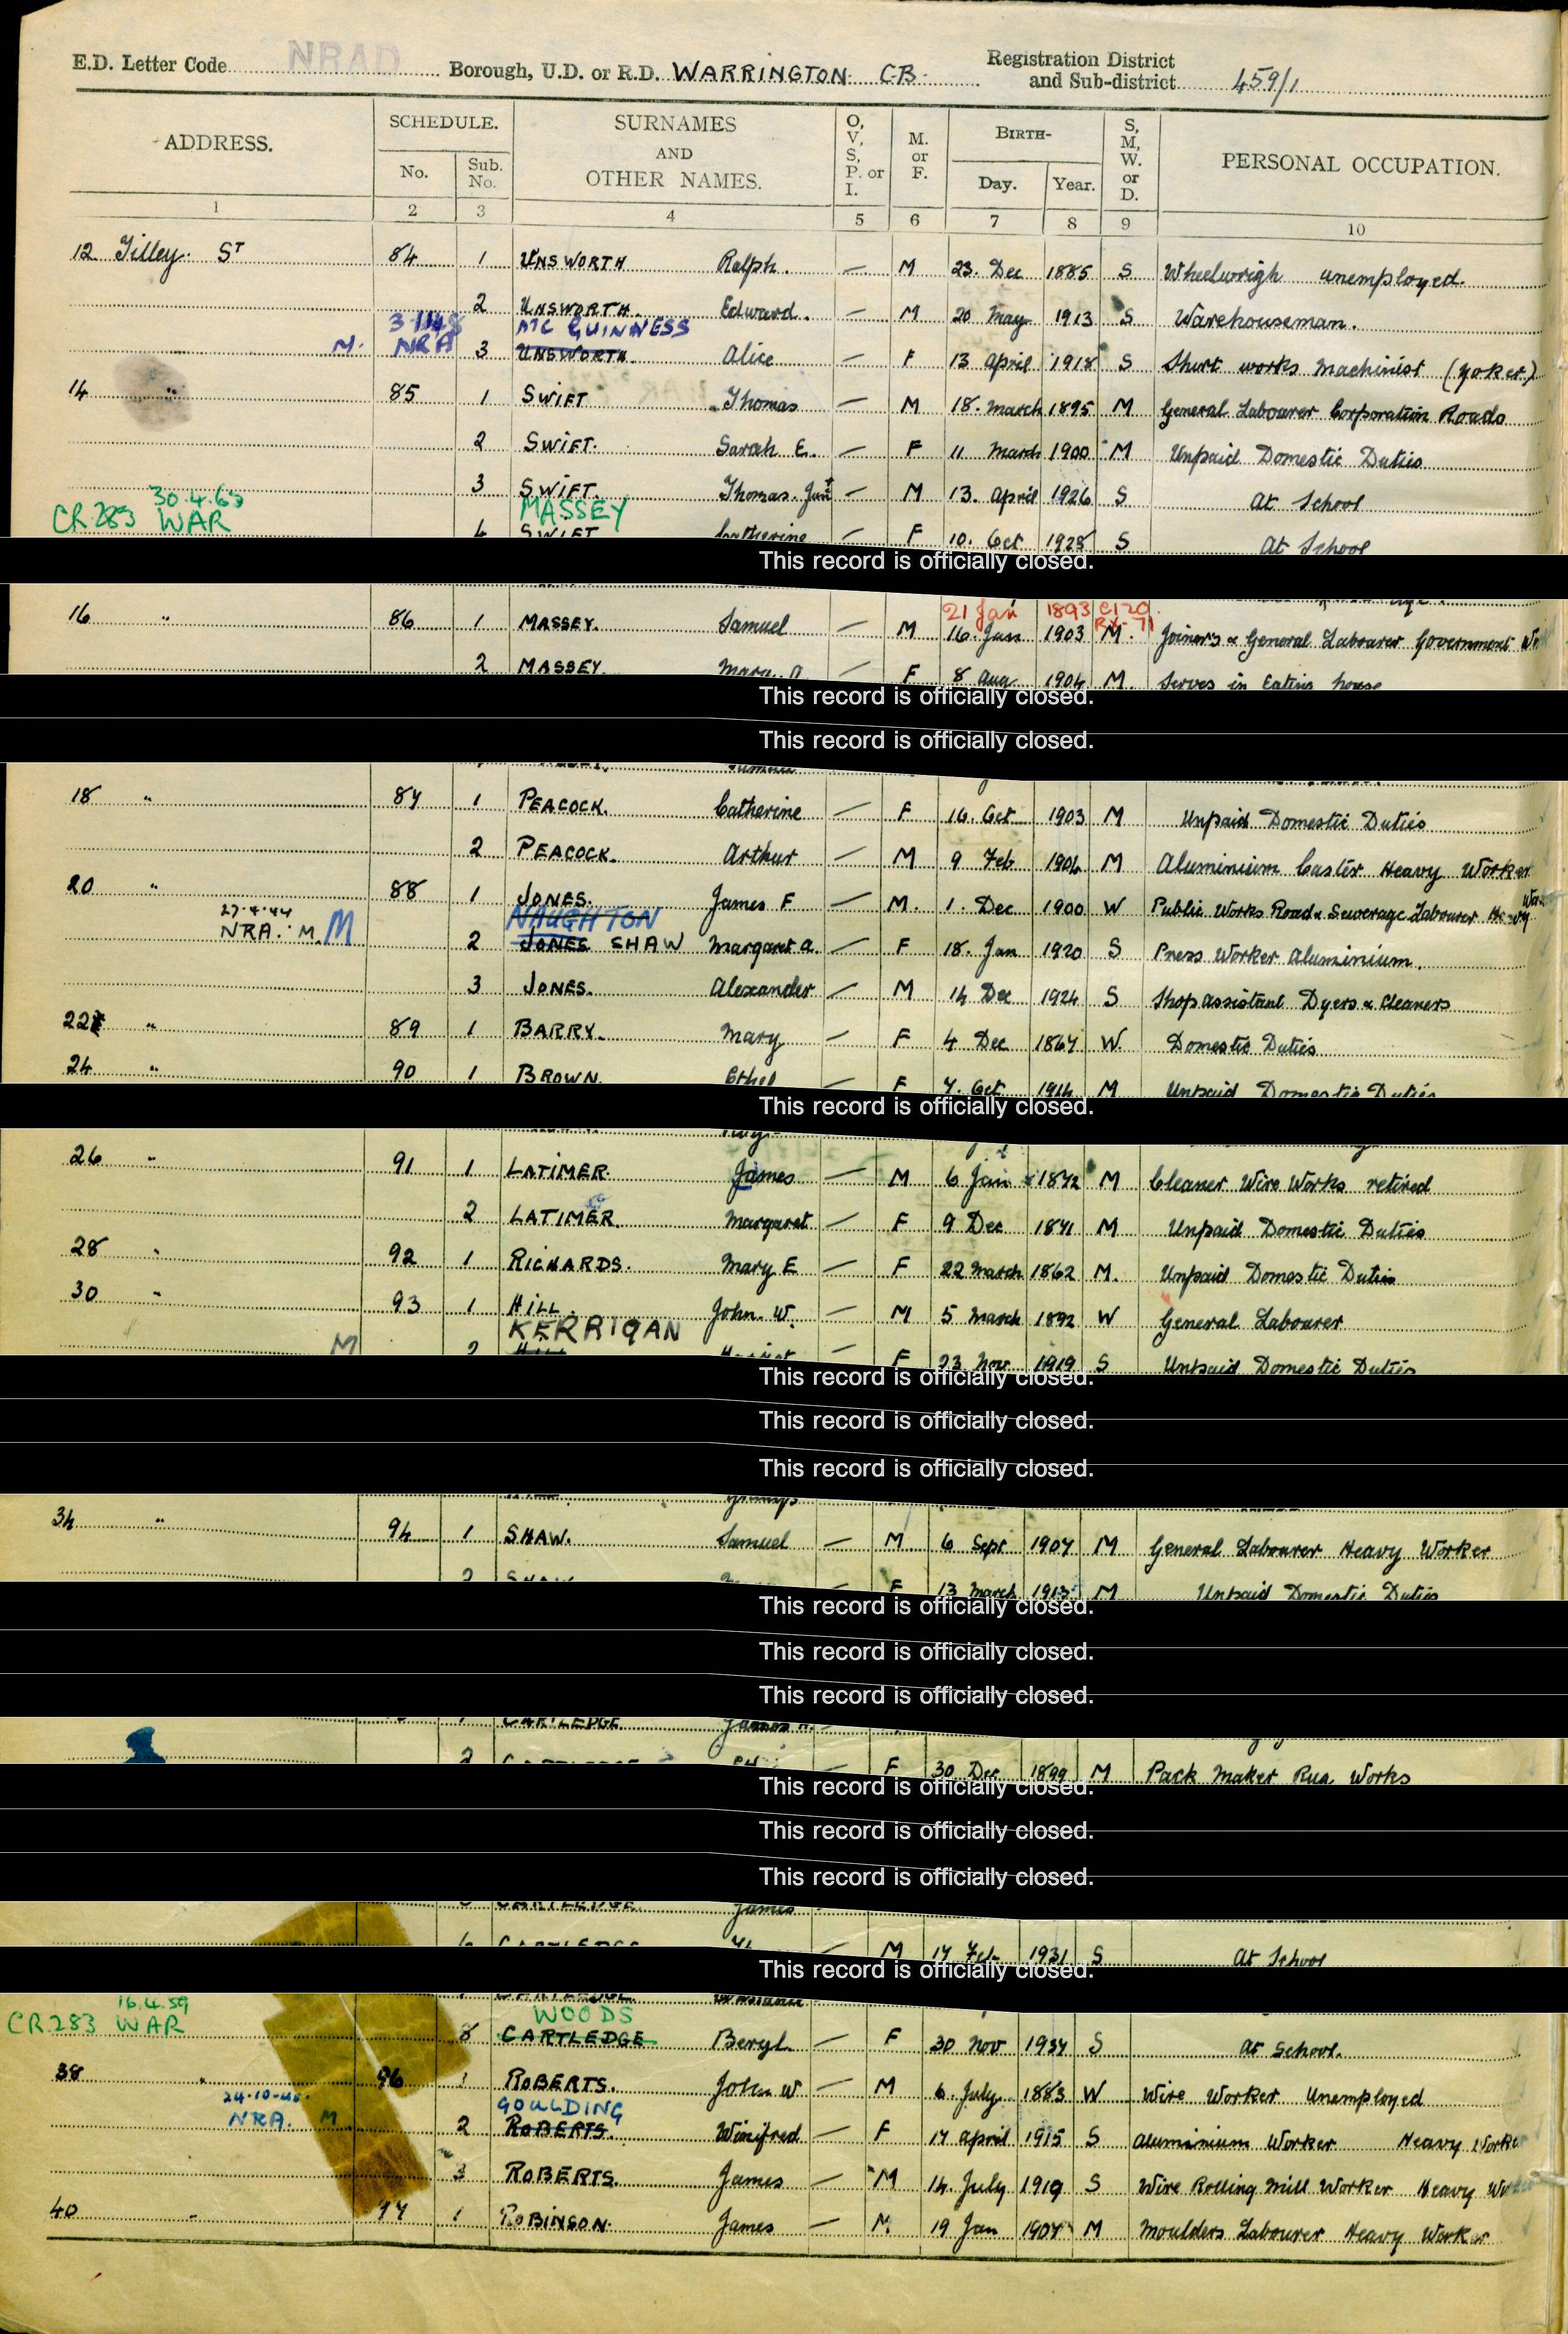 E.D. Letter Code NRAD Borough, U.D. or R.D. WARRINGTON C.B. Registration District and Sub-district 459/1
ADDRESS. SCHEDULE. No. Sub. No. SURNAMES AND OTHER NAMES. O, V, S, P. or I. M. or F. BIRTH- Day. Year. S, M, W. or D. PERSONAL OCCUPATION.
1 2 3 4 5 6 7 8 9 10
12 Tilley St 84 1 UNSWORTH Ralph. — M 23. Dec 1885 S Wheelwrigh unemployed.
2 UNSWORTH. Edward. — M 20 May 1913 S Warehouseman.
3-1148 MC GUINNESS
M. NRA 3 UNSWORTH. Alice — F 13 April 1918 S Shirt works machinist (yoker)
14 " 85 1 SWIFT Thomas — M 18. March 1895 M General Labourer Corporation Roads
2 SWIFT. Sarah E. — F 11 March 1900 M Unpaid Domestic Duties
3 SWIFT. Thomas. Junr — M 13. April 1926 S At School
30.4.65 MASSEY
CR283 WAR 4 SWIFT Catherine — F 10. Oct 1928 S At School
This record is officially closed.
21 Jan 1893
16 " 86 1 MASSEY. Samuel — M 16. Jan 1903 M. Joiner's & General Labourer Government
2 MASSEY. Mary. A — F 8 Aug 1904 M. Serves in Eating house
This record is officially closed.
This record is officially closed.
18 " 87 1 PEACOCK. Catherine — F 16. Oct 1903 M Unpaid Domestic Duties
2 PEACOCK. Arthur — M 9 Feb 1904 M Aluminium Caster Heavy Worker
20 " 88 1 JONES. James F — M. 1. Dec 1900 W Public Works Road & Sewerage Labourer Heavy
27.4.44 NAUGHTON
NRA. M. M 2 JONES SHAW Margaret A. — F 18. Jan 1920 S Press Worker Aluminium.
3 JONES. Alexander — M 14 Dec 1924 S Shop assistant Dyers & Cleaners
22 " 89 1 BARRY. Mary — F 4 Dec 1867 W. Domestic Duties
24 " 90 1 BROWN. Ethel — F 7. Oct 1914 M Unpaid Domestic Duties
This record is officially closed.
26 " 91 1 LATIMER. James — M 6 Jan 1872 M Cleaner Wire Works retired
2 LATIMER. Margaret — F 9 Dec 1871 M Unpaid Domestic Duties
28 " 92 1 RICHARDS. Mary E — F 22 March 1862 M. Unpaid Domestic Duties
30 " 93 1 HILL. John. W. — M 5 March 1892 W General Labourer
KERRIGAN
M 2 HILL — F 23 Nov 1919 S Unpaid Domestic Duties
This record is officially closed.
This record is officially closed.
This record is officially closed.
34 " 94 1 SHAW. Samuel — M 6 Sept 1907 M General Labourer Heavy Worker
2 SHAW — F 13 March 1913 M Unpaid Domestic Duties
This record is officially closed.
This record is officially closed.
This record is officially closed.
1 CARTLEDGE James H.
2 CARTLEDGE — F 30 Dec 1899 M Pack Maker Works
This record is officially closed.
This record is officially closed.
This record is officially closed.
CARTLEDGE. James
6 CARTLEDGE — M 17 Feb 1931 S At School
This record is officially closed.
16.4.59 WOODS
CR283 WAR 8 CARTLEDGE Beryl — F 30 Nov 1934 S At School.
38 " 96 1 ROBERTS. John W — M 6. July 1883 W Wire Worker Unemployed
24-10-45 GOULDING
NRA. M 2 ROBERTS. Winifred — F 17 April 1915 S Aluminium Worker Heavy Worker
3 ROBERTS. James — M 14. July 1919 S Wire Rolling Mill Worker Heavy
40 " 97 1 ROBINSON. James — M. 19 Jan 1907 M Moulders Labourer Heavy Worker